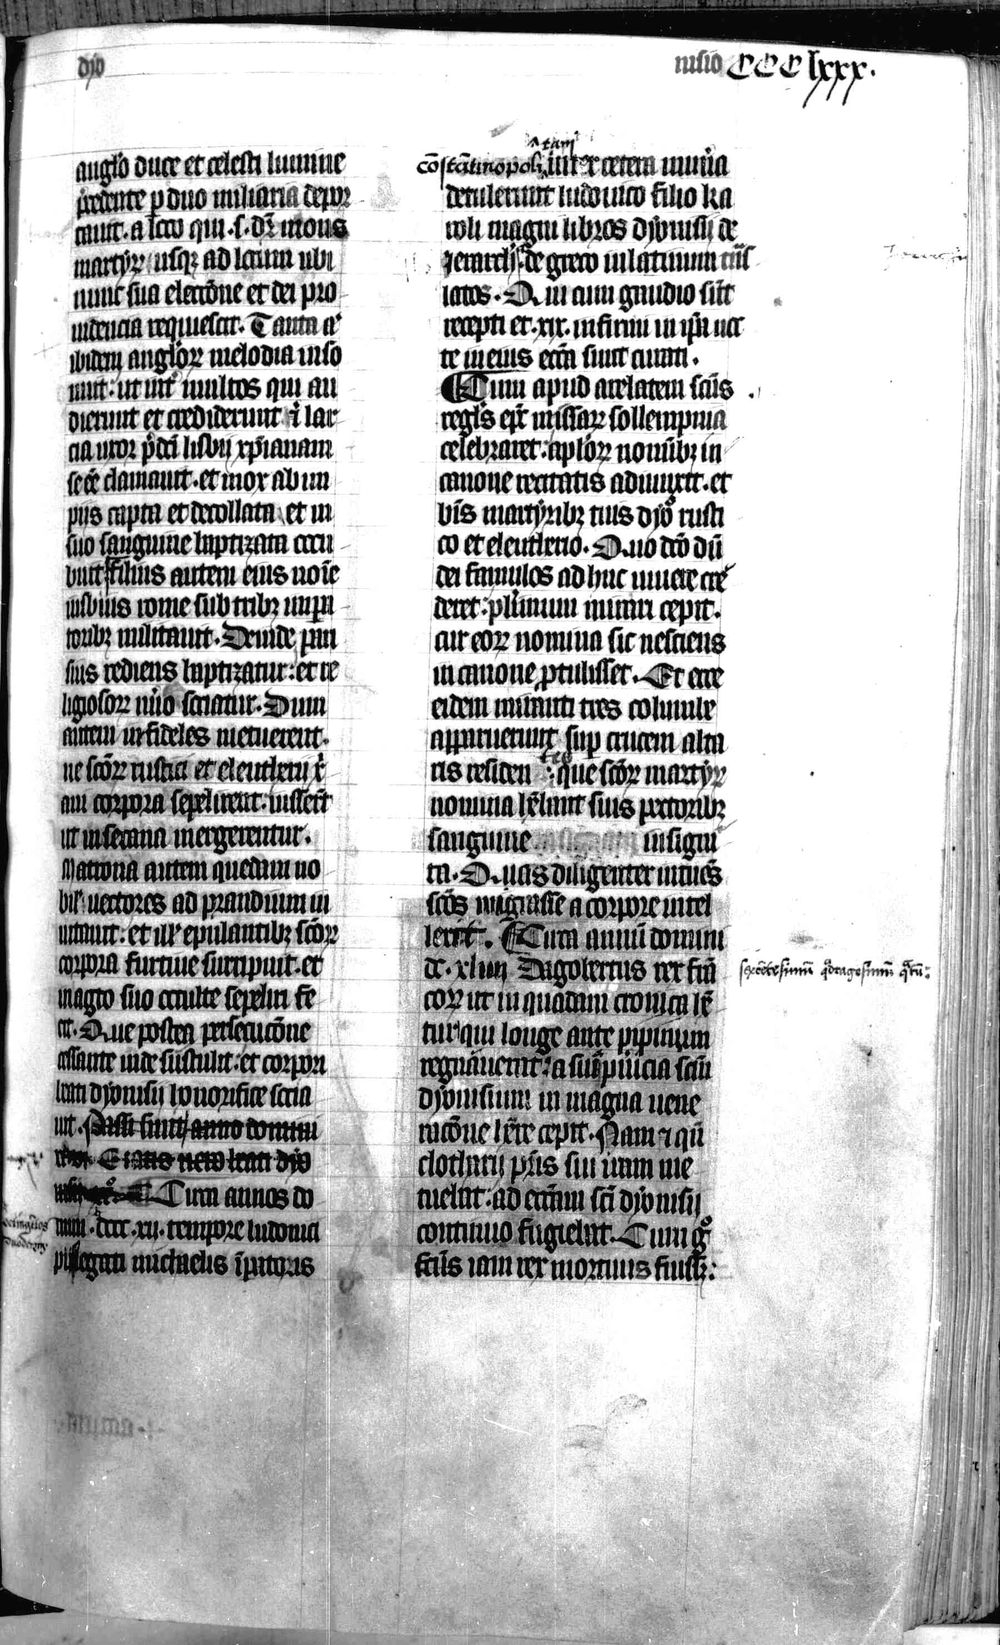 dyo
nisio CCClxxx.
anglo duce et celesti lumine
p̄cedente p duo miliaria depor
tauit. a loco qui .s. dr̄ mons
martyꝝ usqꝫ ad locum ubi
nunc sua electōne et dei pro
uidencia requiescit. Tanta aͭ
ibidem angloꝝ melodia inso
nuit. ut int̄ multos qui au
dierunt et crediderunt ⁊ lar
cia uxor p̄dci lisbii xp̄ianam
se eē clamauit. et mox ab im
piis capta et decollata et in
suo sanguine baptizata occu
buit filius autem eius noīe
uisbius rome sub tribꝫ impa
toribꝫ militauit. Deinde pari
sius rediens baptizatur: et re
ligiosoꝝ nūo sociatur. Dum
autem infideles metuerent.
ne scōꝝ rustici et eleutherii xp̄i
ani corpora sepelirent. iusserūt
ut in secana mergerentur.
Matrona autem quedam no
bil̄. uectores ad prandium in
uitauit: et ill̄ epulantibꝫ scōꝝ
corpora furtiue surripuit. et
in agro suo occulte sepeliri fe
cit. Que postea persecucōne
cessante inde sustulit: et corpori
beati dyonisii honorifice socia
uit. Passi sunt anno domini
Circa annos do
mini .dccc.xii. tempore ludouici
legati michaelis īpatoris
^tani
cōstātinopoli inter cetera munia
detulerunt ludouico filio ka
roli magni libros dyonisii de
ierarchia de greco in latinum trās
latos. Qui cum gaudio sūt
recepti et .xix. infirmi in ip̄a noc
te in eius ecclia sunt curati.
Cum apud arelatem scūs
regl̄s ep̄s missaꝝ sollempnia
celebraret: aploꝝ nomībꝫ in
canone recitatis adiunxit. et
bīs martyribꝫ tuis dyoͦ rusti
co et eleutherio. Quo dcō dū
dei famulos ad huc uiuere cre
deret: plurimum mirari cepit.
cur eoꝝ nomina sic nesciens
in canone ꝓtulisset. Et ecce
eidem miranti tres columbe
apparuerunt sup crucem alta
ris residentes: que scōꝝ martyꝝ
nomina hēbant suis pectoribꝫ
sanguine insigni
ta. Quas diligenter intuens
scōs migrasse a corpore intel
lexit. Circa annū domini
dc.xliiii Dagobertus rex frā
coꝝ ut in quadam cronica lḡ
tur qui longe ante pipinum
regnauerat: a sua puicia scm̄
dyonisium in magna uene
racōne hēre cepit. Nam ⁊ qn̄
clotharii pr̄is sui iram me
tuebat: ad ecclām scī dyonisii
continuo fugiebat. Cum gͦ
fc̄us iam rex mortuus fuiss̄:
sexcētesimū qͣdragesimū qͣrtū: